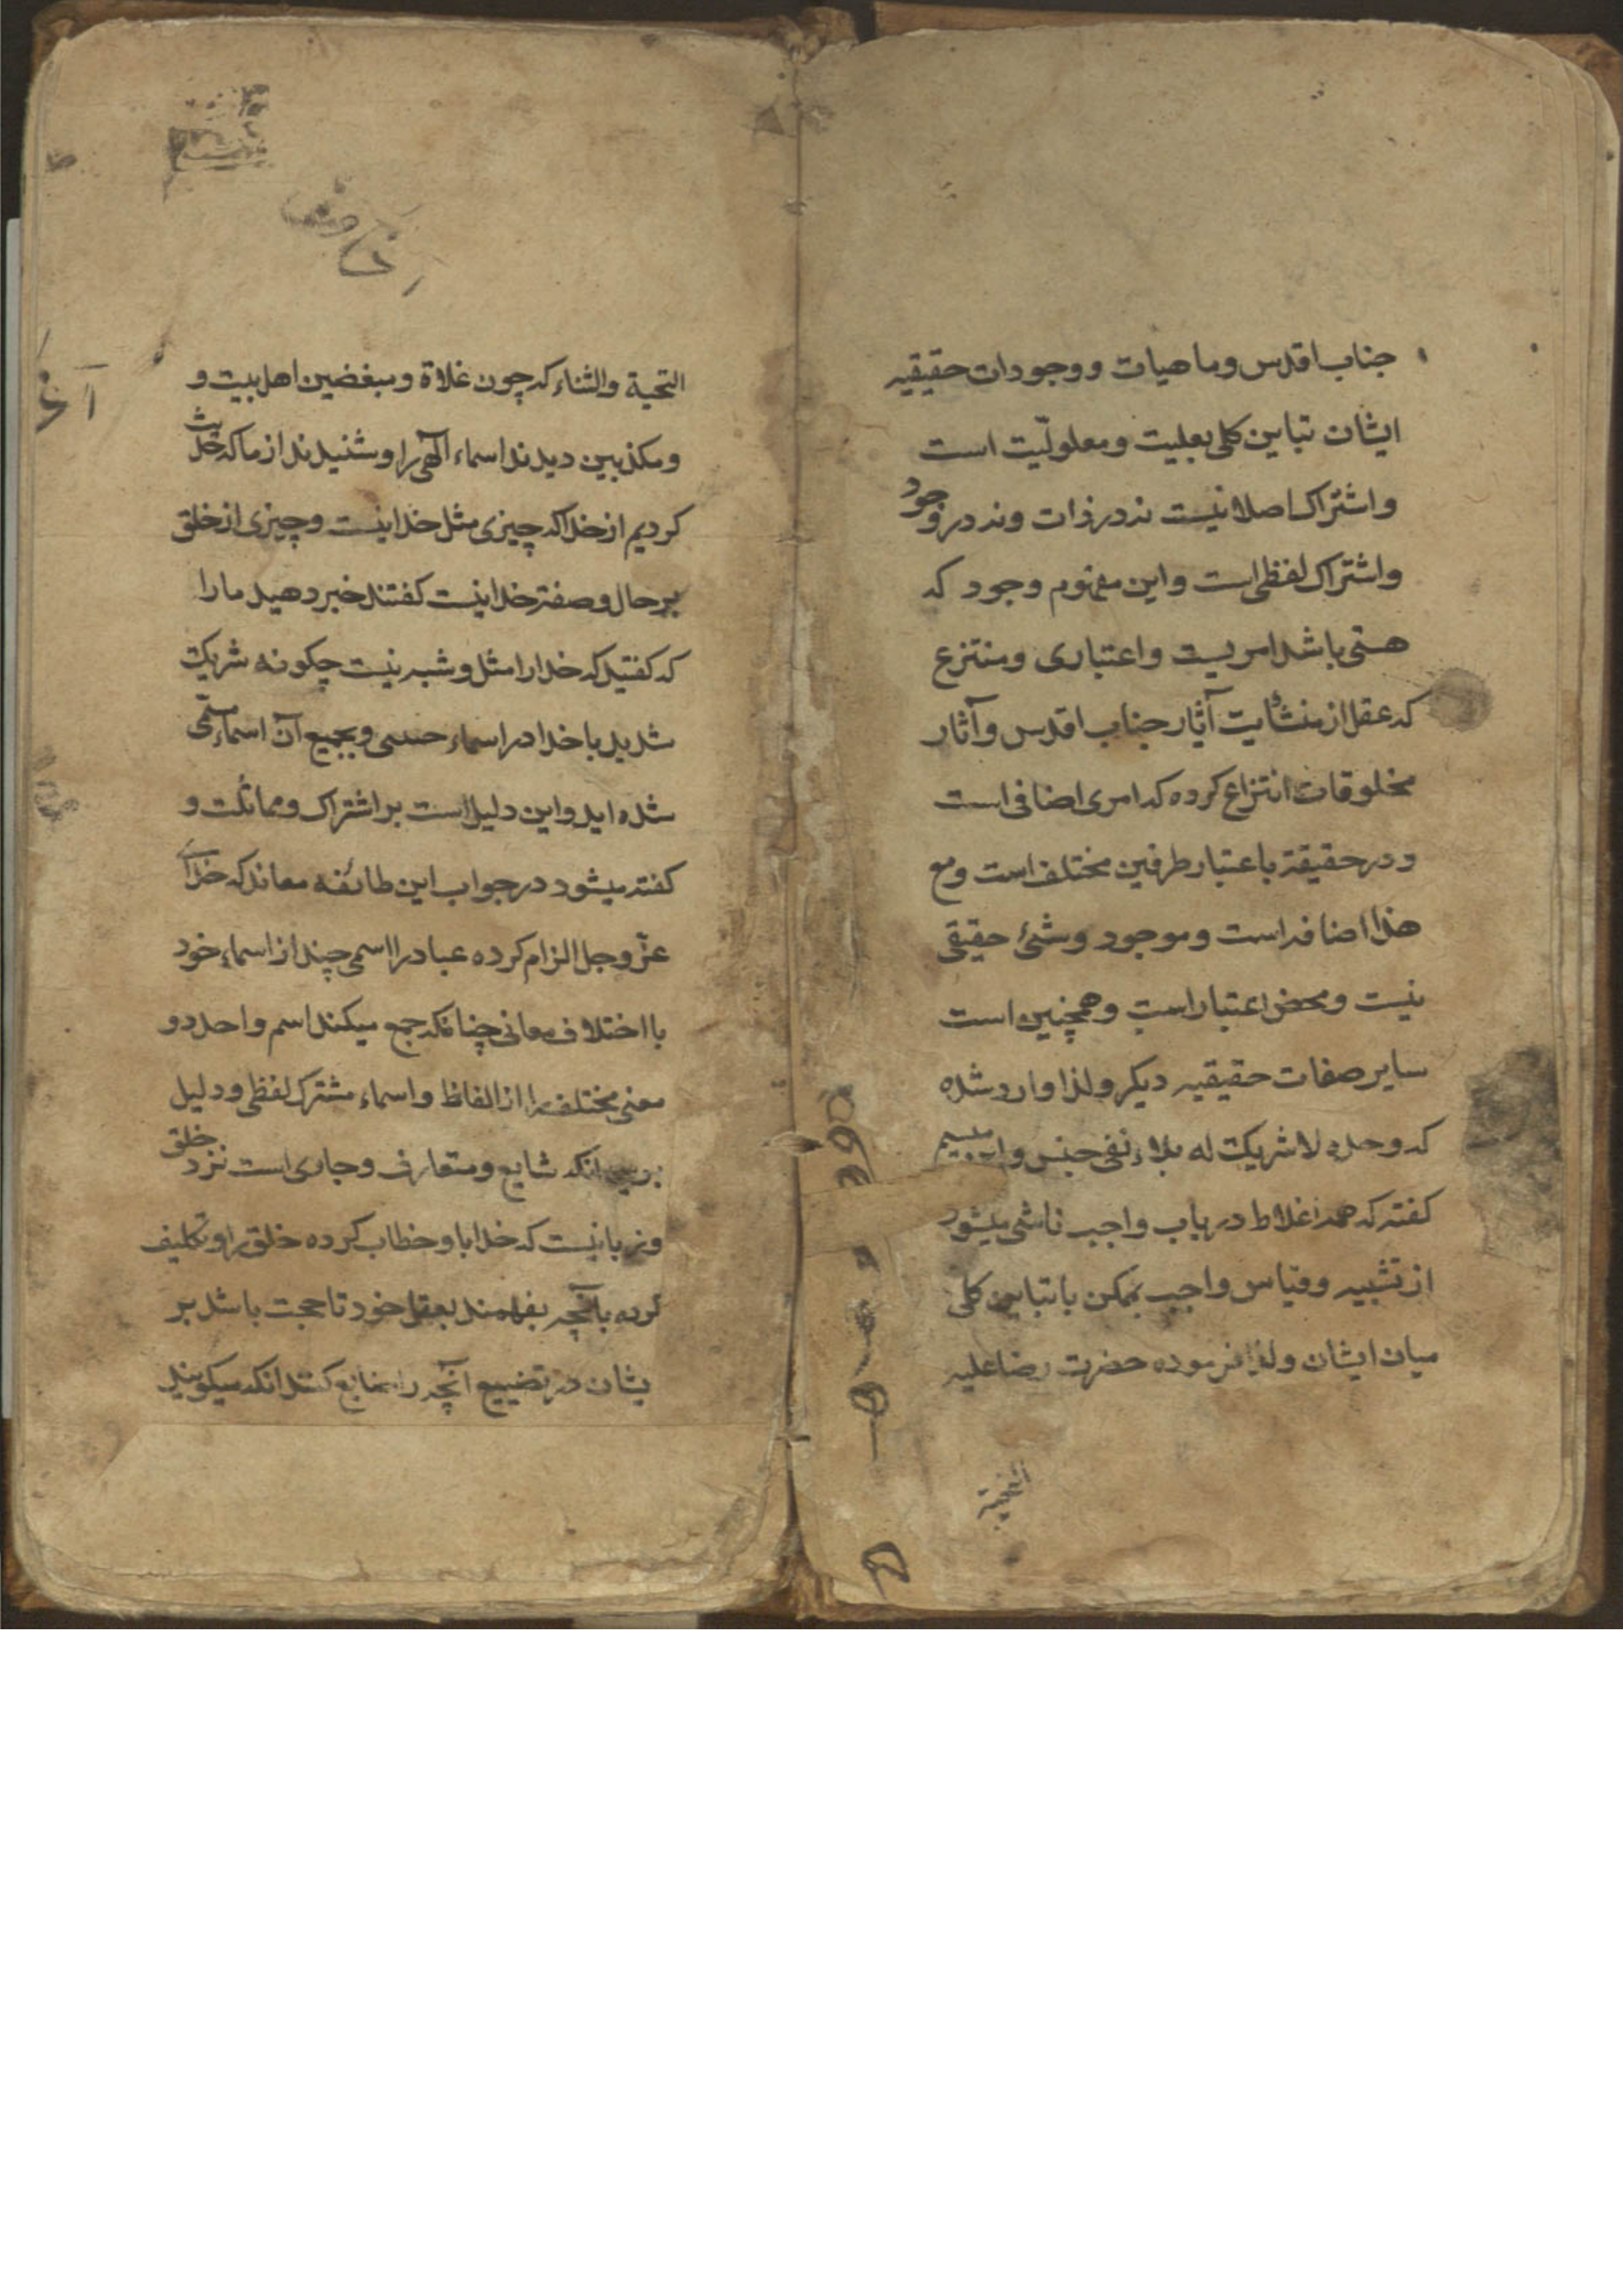 جناب اقدس وماهیات و وجودات حقیقیه
ایشان تباین کلی بعلیت ومعلولیّت است
و اشتراک اصلا نیست نه در ذات ونه در وجود
واشتراک لفظی است واین مفهوم وجود که
هستی باشد امریست واعتباری ومنتزع
که عقل از منشائیت آثار جناب اقدس وآثار
مخلوقات انتزاع کرده که امری اضافی است
ودر حقیقة باعتبار طرفین مختلف است ومع
هذا اضافه است وموجود وشئ حقیقی
نیست ومحض اعتبار است وهمچنین است
سایر صفات حقیقیه دیکر ولذا وارد شده
که وحده لاشریک له بلاء نفی جنس و
کفته که همه اغلاط در باب واجب ناشی میشود
از تشبیه وقیاس واجب بممکن با تباین کلی
میان ایشان ولذا فرموده حضرت رضا علیه
التحیة
التحیة والثناء که چون غلاة ومبغضین اهل بیت و
ومکذبین دیدند اسماء الهی را وشنیدند از ما که حدیث
کردیم از خدا که چیزی مثل خدا نیست وچیزی از خلق
بر حال وصفة خدا نیست کفتند خبر دهید ما را
که کفتید که خدا را مثل وشبه نیست چکونه شریک
شدید با خدا در اسماء حسنی وبجمیع آن اسماء مسمّی
شده اید واین دلیل است بر اشتراک ومماثلت و
کفته میشود در جواب این طائفه معاند که خدای
عزّ وجل الزام کرده عباد را اسمی چند از اسماء خود
با اختلاف معانی چنانکه جمع میکند اسم واحد دو
معنی مختلف را از الفاظ واسماء مشترک لفظی ودلیل
بر این آنکه شایع ومتعارف وجاری است نزد خلق
و زبانیست که خدا باو خطاب کرده خلق را وتکلیف
کرده بآنچه بفهمند بعقل خود تا حجت باشد بر
یشان در تضییع آنچه را ضایع کنند آنکه میکویند